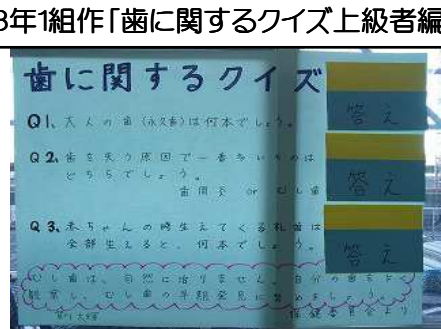 3年1組作「歯に関するクイズ上級者編
歯に関するクイズ
Q1、大人の歯(永久歯)は何本でしょう。
答え
Q2、歯を失う原因で一番多いものは
どちらでしょう。
歯周炎 or むし歯
答え
Q3、赤ちゃんの時生えてくる乳歯は
全部生えると、何本でしょう。
答え
むし歯は、自然に治りません。自分の歯をよく
観察し、むし歯の早期発見に努めましょう。
保健委員会より